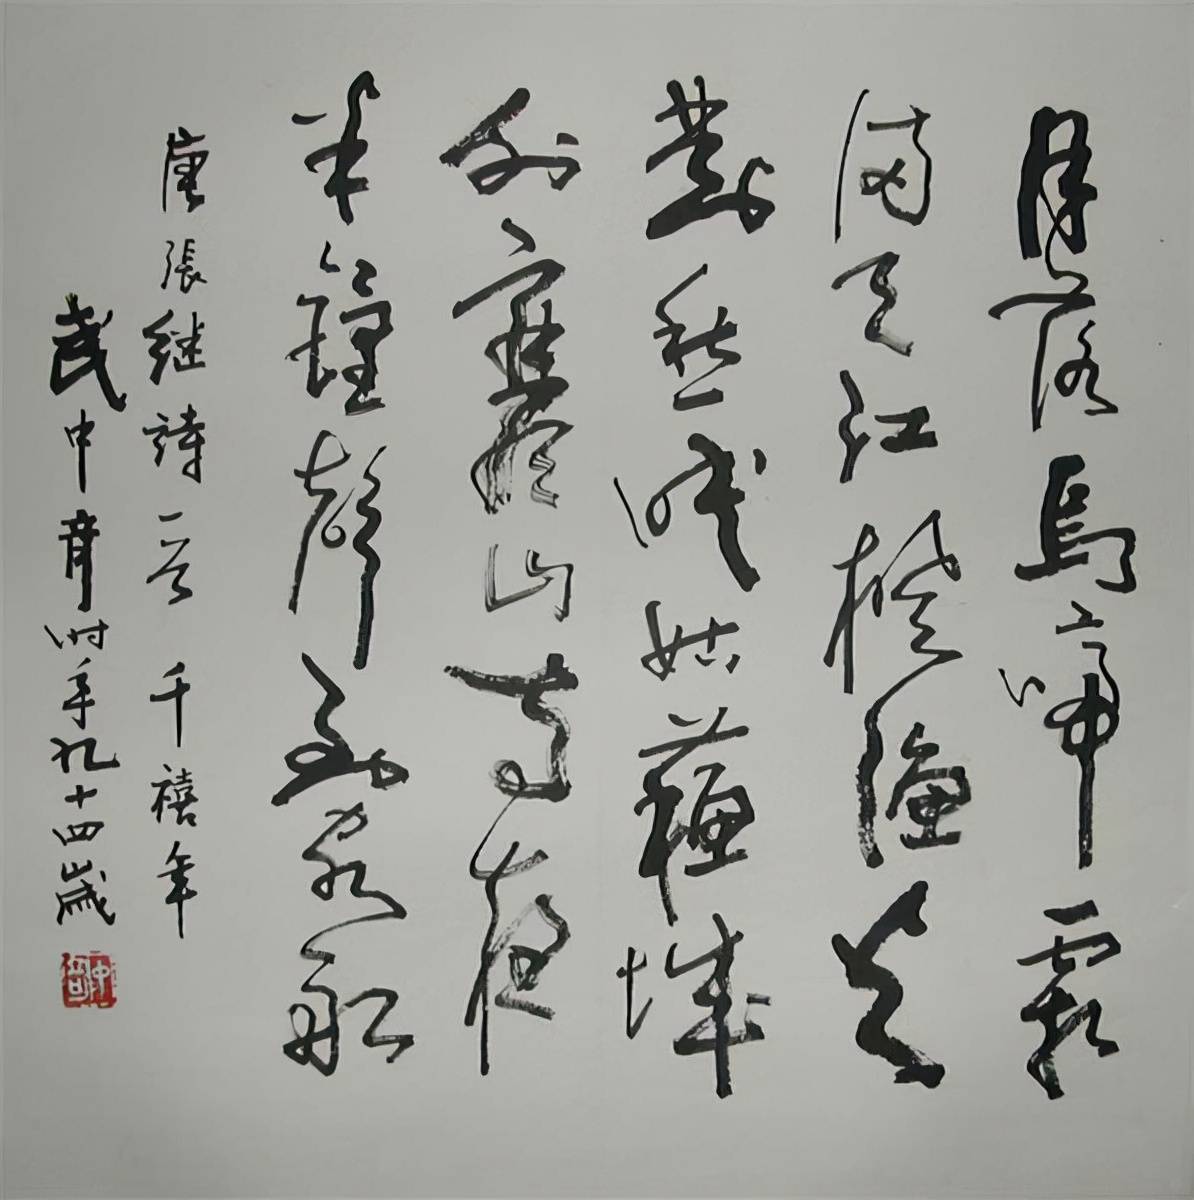 月落烏啼霜
滿天江楓漁火
對愁眠姑蘇城
外寒山寺夜
半鐘聲到客船
唐張继詩一首千禧年
武中奇时年九十四歲
中奇